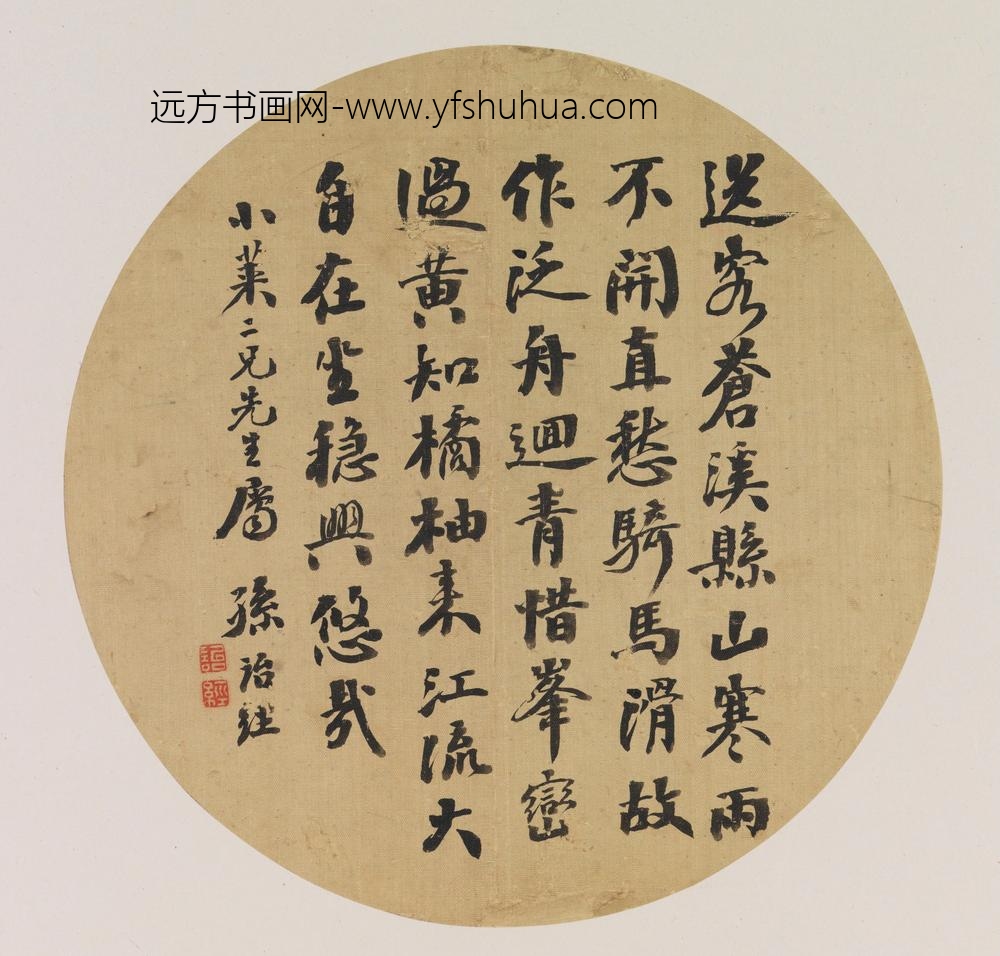 远方书画网-www.yfshuhua.com
送客蒼溪縣山寒雨
不開直愁騎馬滑故
作泛舟迴青惜峯巒
過黄知橘柚来江流大
自在坐穏興悠哉
小萊二兄先生屬 孫詒經
詒經